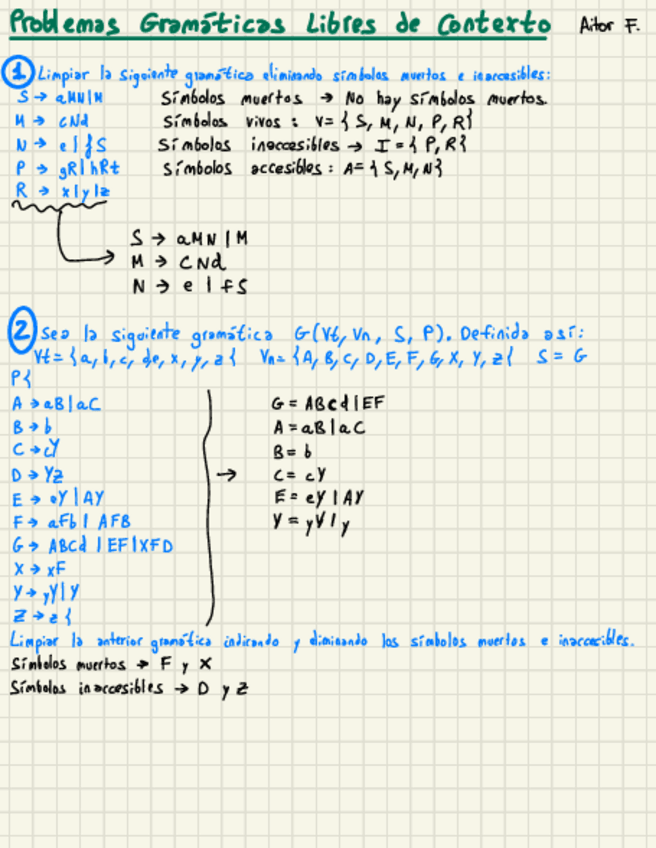 Problemas Gramáticas Libres de Contexto Aitor F.
1 Limpiar la siguiente gramática eliminando símbolos muertos e inaccesibles:
S → aMN|M Símbolos muertos → No hay símbolos muertos.
M → cNd Símbolos vivos : V= { S, M, N, P, R}
N → e | fS Símbolos inaccesibles → I = { P, R}
P → gR|hRt Símbolos accesibles : A= { S, M, N}
R → x|y|z
S → aMN | M
M → cNd
N → e | fS
2 Sea la siguiente gramática G(Vt, Vn, S, P). Definida así:
Vt= { a, b, c, de, x, y, z { Vn= {A, B, C, D, E, F, G, X, Y, z{ S = G
P{
A → aB|aC G = ABcd|EF
B → b A = aB|aC
C → cY B = b
D → Yz C = cY
E → eY | AY E = eY | AY
F → aFb | AFB Y = yY|y
G → ABCd | EF|XFD
X → xF
Y → yY|Y
Z → z {
Limpiar la anterior gramática indicando y eliminando los símbolos muertos e inaccesibles.
Símbolos muertos → F y X
Símbolos inaccesibles → D y Z